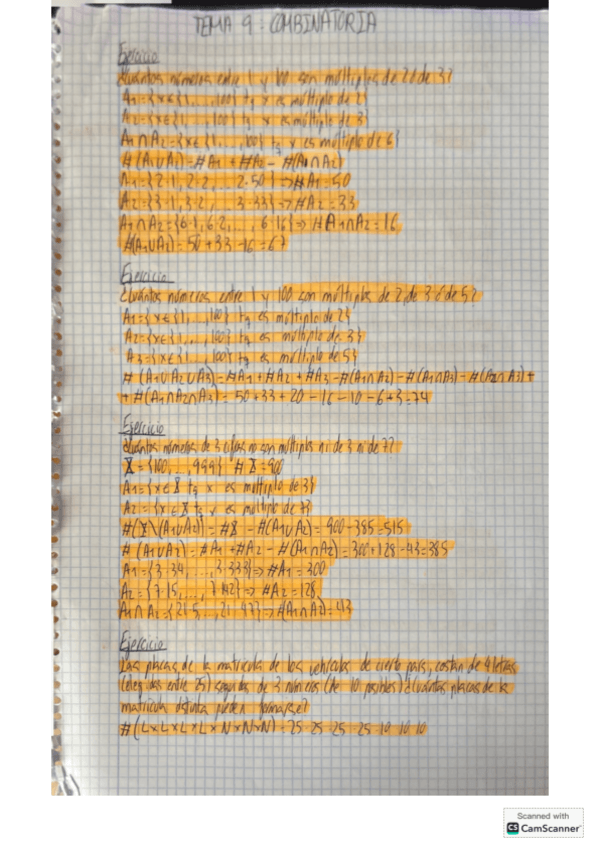 TEMA 9: COMBINATORIA
Ejercicio
¿Cuántos números entre 1 y 100 son múltiplos de 2 ó de 3?
A₁={x∈{1,...,100} tq x es múltiplo de 2}
A₂={x∈{1,...,100} tq x es múltiplo de 3}
A₁∩A₂={x∈{1,...,100} tq x es múltiplo de 6}
#(A₁∪A₂)=#A₁+#A₂-#(A₁∩A₂)
A₁={2·1, 2·2, ..., 2·50}⇒#A₁=50
A₂={3·1, 3·2, ..., 3·33}⇒#A₂=33
A₁∩A₂={6·1, 6·2, ..., 6·16}⇒#A₁∩A₂=16
#(A₁∪A₂)=50+33-16=67
Ejercicio
¿Cuántos números entre 1 y 100 son múltiplos de 2, de 3 ó de 5?
A₁={x∈{1,...,100} tq es múltiplo de 2}
A₂={x∈{1,...,100} tq es múltiplo de 3}
A₃={x∈{1,...,100} tq es múltiplo de 5}
#(A₁∪A₂∪A₃)=#A₁+#A₂+#A₃-#(A₁∩A₂)-#(A₁∩A₃)-#(A₂∩A₃)+
+#(A₁∩A₂∩A₃)=50+33+20-16-10-6+3=74
Ejercicio
¿Cuántos números de 3 cifras no son múltiplos ni de 3 ni de 7?
X={100,...,999} #X=900
A₁={x∈X tq x es múltiplo de 3}
A₂={x∈X tq x es múltiplo de 7}
#(X\(A₁∪A₂))=#X-#(A₁∪A₂)=900-385=515
#(A₁∪A₂)=#A₁+#A₂-#(A₁∩A₂)=300+128-43=385
A₁={3·34,...,3·333}⇒#A₁=300
A₂={7·15,...,7·142}⇒#A₂=128
A₁∩A₂={21·5,...,21·47}⇒#(A₁∩A₂)=43
Ejercicio
Las placas de la matrícula de los vehículos de cierto país, costan de 4 letras
(elegidas entre 25) seguidas de 3 números (de 10 posibles) ¿Cuántas placas de
matrícula distinta pueden formarse?
#(L×L×L×L×N×N×N)=25·25·25·25·10·10·10
Scanned with
CS CamScanner